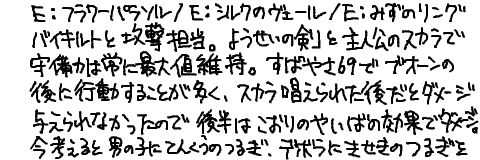 E:フラワーパラソル/E:シルクのヴェール/E:みずのリング
バイキルトと攻撃担当。ようせいの剣と主人公のスカラで
守備力は常に最大値維持。すばやさ69でブオーンの
後に行動することが多く、スカラ唱えられた後だとダメージ
与えられなかったので後半はこおりのやいばの効果でダメージ。
今考えると男の子にてんくうのつるぎ、デボラにきせきのつるぎを